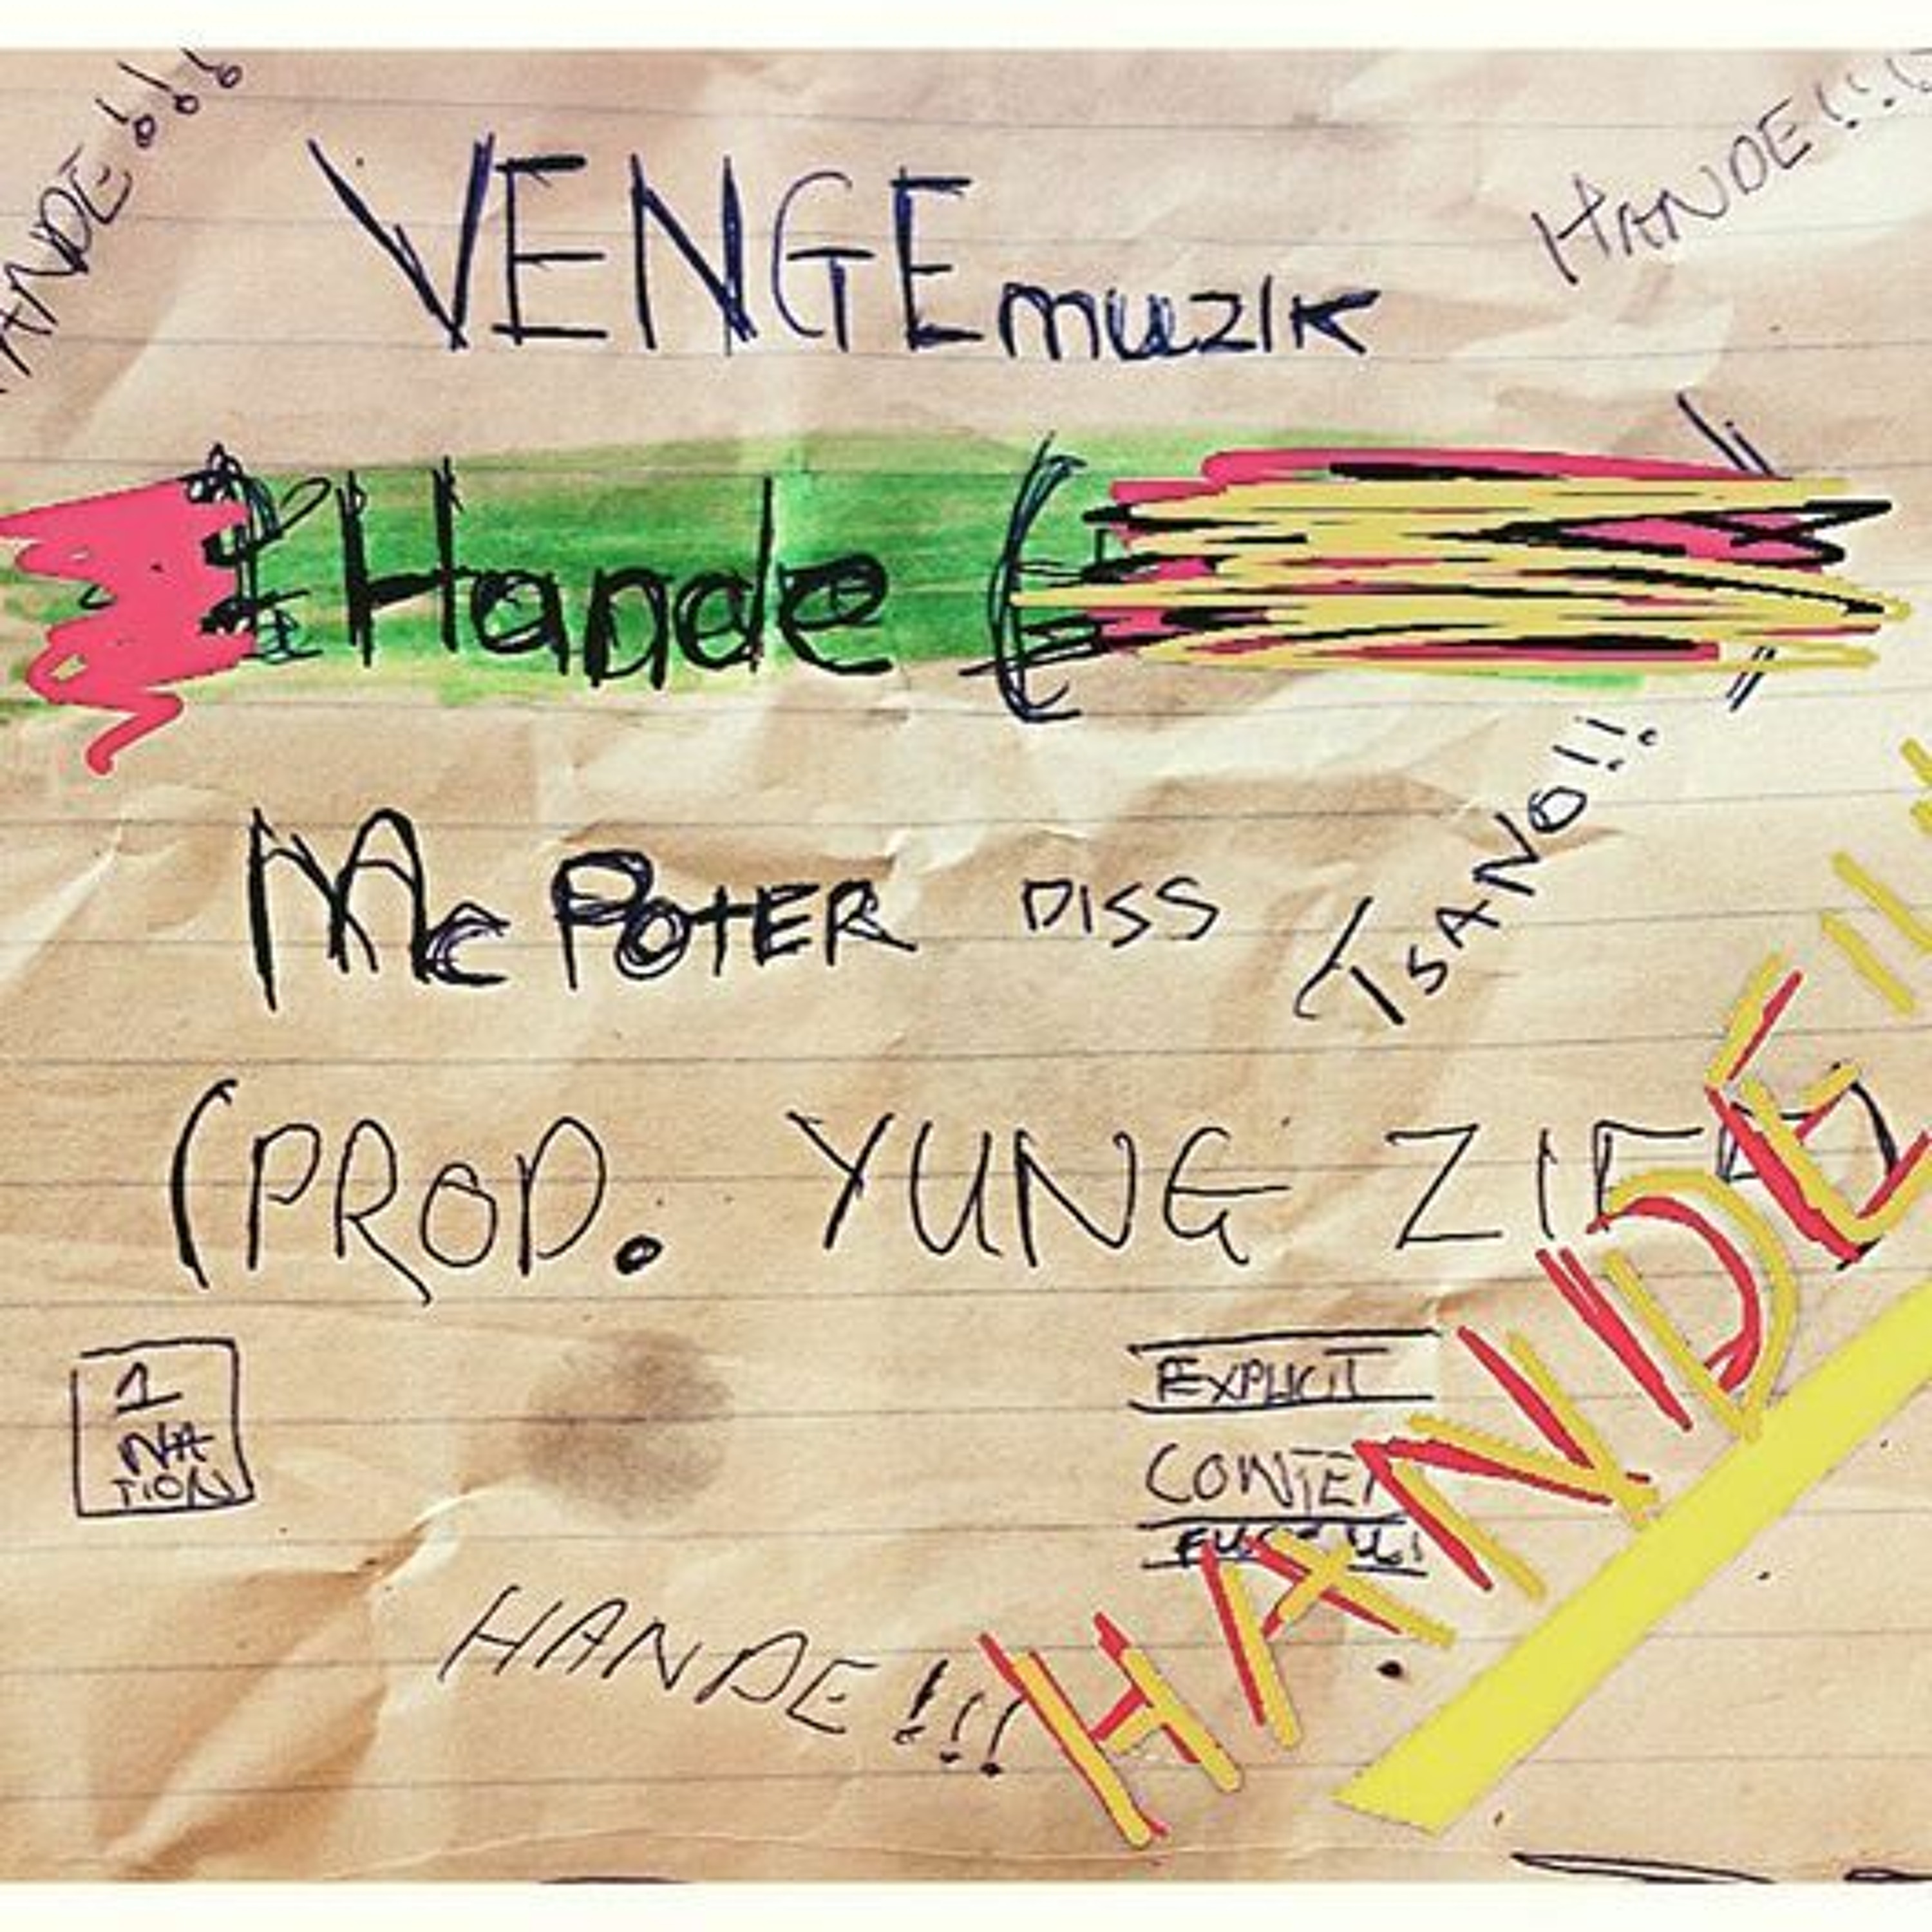 HANDE!!!
VENGEmuzik
Hande (
Mc POTER DISS
TSANO!!
(PROD. YUNG
1
NA
TION
EXPLICIT
HANDE!!!
HANDE!!